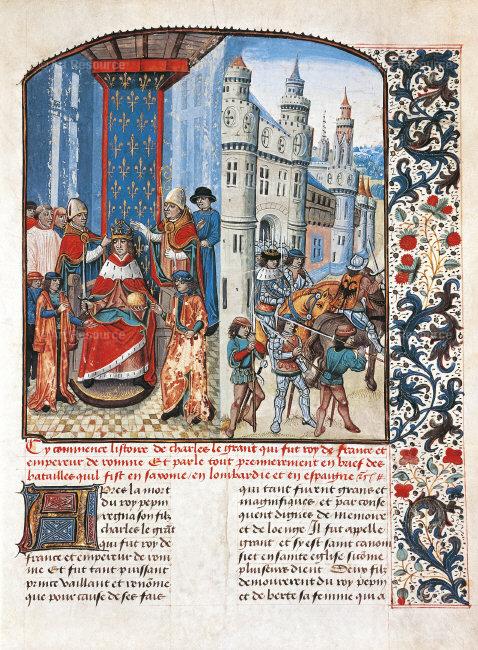 Cy commence listoire de charles le grant qui fut roy de france et
empereur de romme Et parle tout premierement en brief des
batailles quil fist en saxonie, en lombardie et en espaigne
Apres la mort
du roy pepin
regna son filz
charles le grat
qui fut roy de
france et empereur de rom
me Et fut tant puissant
prince vaillant et renome
que pour cause de ses fais
qui tant furent grans et
magnifiques et par conse
quent dignes de memoire
et de loenge Il fut appelle
grant et sy est saint canom
sie en sainte eglise sicome
plusieurs dient Deux filz
demourerent du roy pepin
et de berte sa femme qui a